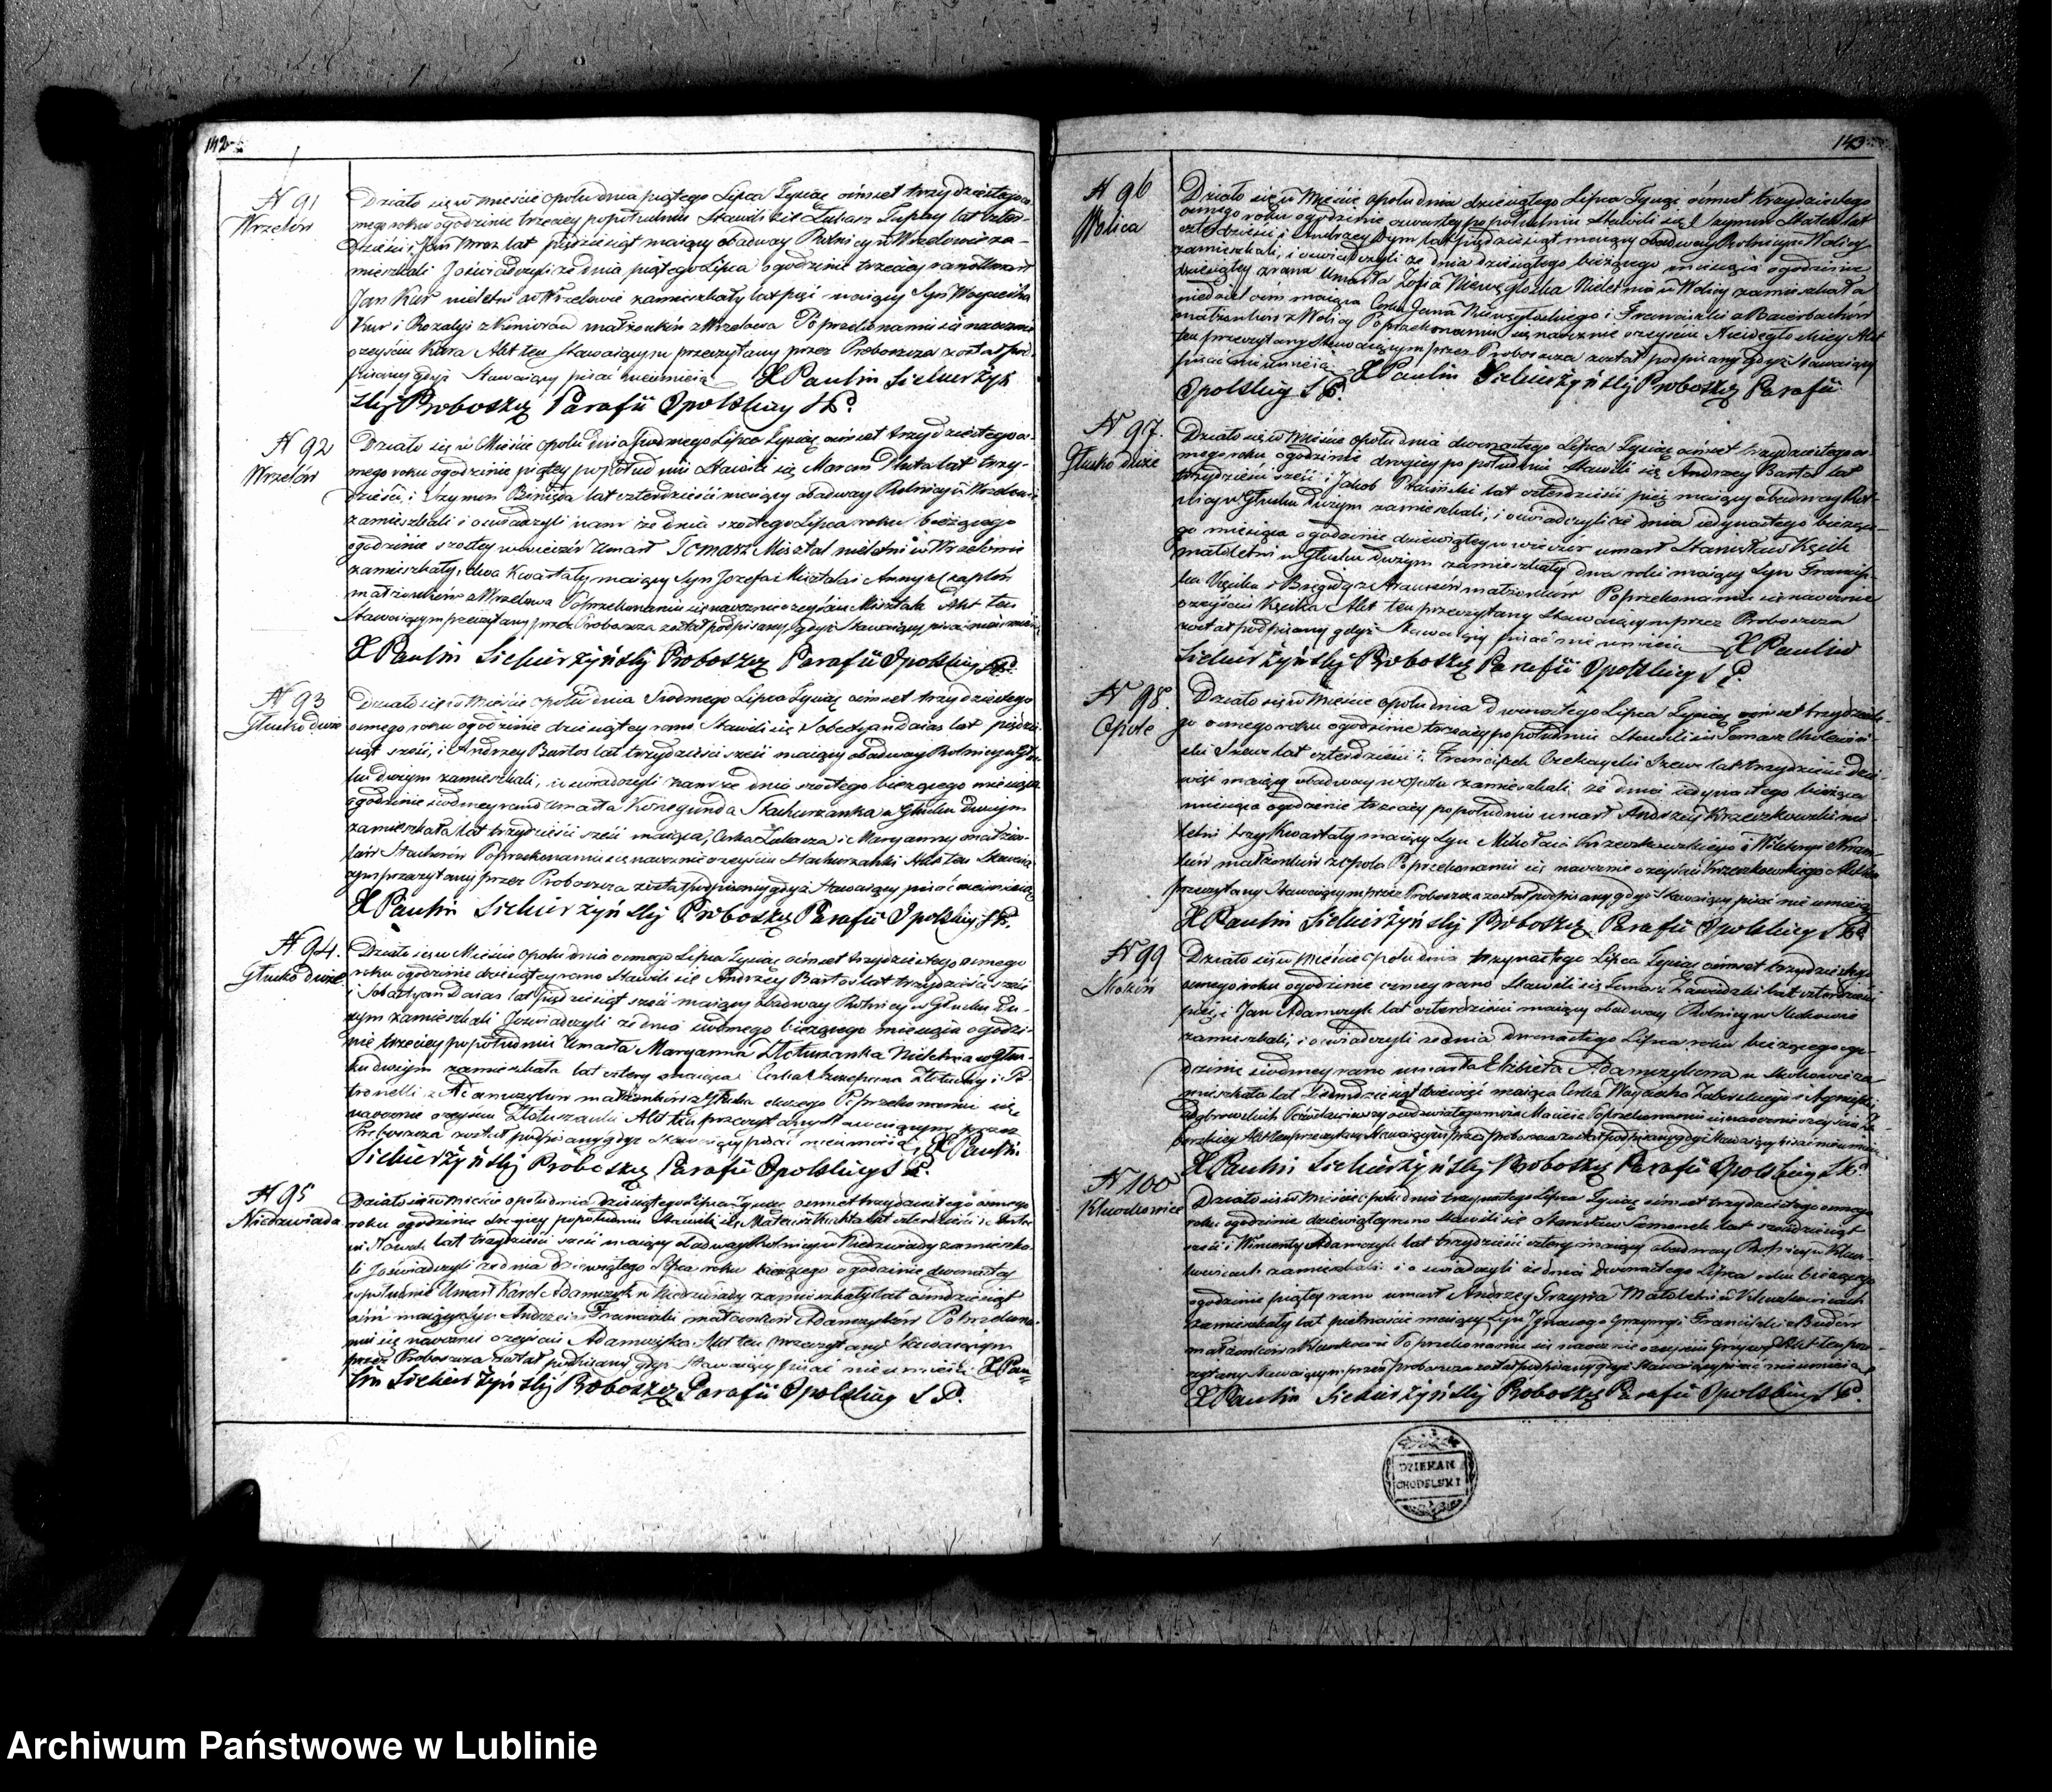 142
N 91
Wrzelów
Działo się w mieście Opolu dnia piątego Lipca Tysiąc ośmset trzydziestego ó-
smego roku o godzinie trzeciey popołudniu Stawili się Łukasz lat czter-
dzieści i Jan Mroz lat pięćdziesiąt maiący obadway Rolnicy w Wrzelowie za-
mieszkali J oświadczyli że dnia piątego Lipca o godzinie trzeciey rano Umarł
Jan Kur nieletni w Wrzelowie zamieszkały lat pięć maiący Syn Woyciecha
Kur i Rozalyi z małżonków z Wrzelowa Po przekonaniu się naocznie
o zeyściu Kura Akt ten Stawaiącym przeczytany przez Proboszcza został pod-
pisany gdyż Stawaiący pisać nieumieią X Paulin Siekierzyń
skij Proboszcz Parafii Opolskiey
N 92
Wrzelów
Działo się w Mieście Opolu dnia Siodmego Lipca Tysiąc ośmset trzydziestego ó-
smego roku o godzinie piątey popołudniu Stawili się Marcin Pluta lat trzy-
dzieści, i Szymon lat czterdzieści maiący obadway Rolnicy w Wrzelowie
zamieszkali i oświadczyli nam że dnia szostego Lipca roku bieżącego
o godzinie szostey wieczór Umarł Tomasz Misztal nieletni w Wrzelowie
zamieszkały, dwa Kwartały maiący Syn Jozefa Misztala i Anny z
małżonków z Wrzelowa Po przekonaniu się naocznie o zeyściu Misztala Akt ten
Stawaiącym przeczytany przez Proboszcza został podpisany gdyż Stawaiący pisać nieumieią
X Paulin Siekierzyńskij Proboszcz Parafii Opolskiey
N 93
Głusko duże
Działo się w Mieście Opolu dnia Siodmego Lipca Tysiąc ośmset trzydziestego
osmego roku o godzinie dziesiątey rano Stawili się Sobestyan Daias lat pięćdzie-
siąt sześć, i Andrzey Bartos lat trzydzieści sześć maiący obadway Rolnicy w Głu-
sku dużym zamieszkali, i oświadczyli nam że dnia szostego bieżącego miesiąca
o godzinie siodmey rano Umarła Konegunda Stachurzanka w Głusku Dużym
zamieszkała lat trzydzieści sześć maiąca, Corka Łukasza i Maryanny małżon-
ków Stachurów Po przekonaniu się naocznie o zeyściu Stachurzanki Akt ten Stawaią-
cym przeczytany przez Proboszcza został podpisany gdyż Stawaiący pisać nieumieią
X Paulin Siekierzyńskij Proboszcz Parafii Opolskiey
N 94.
Głusko duże
Działo się w Mieście Opolu dnia osmego Lipca Tysiąc ośmset trzydziestego osmego
roku o godzinie dziesiątey rano Stawili się Andrzey Bartos lat trzydzieści sześć
i Sobestyan Daias lat pięćdziesiąt sześć maiący obadway Rolnicy w Głusku Du-
żym zamieszkali J oświadczyli że dnia siodmego bieżącego miesiąca o godzi-
nie trzeciey popołudniu Umarła Maryanna Złotuszanka Nieletnia w Głus-
ku dużym zamieszkała lat cztery maiąca Corka Szczepana Złotuchy i Pe-
tronelli z Adamczyków małżonków z Głuska dużego Po przekonaniu się
naocznie o zeyściu Złotuszanki Akt ten przeczytany Stawaiącym przez
Proboszcza został podpisany gdyż Stawaiący pisać nieumieią X Paulin
Siekierzyńskij Proboszcz Parafii Opolskiey
N 95
Niedzwiada
Działo się w Mieście Opolu dnia dziewiątego Lipca Tysiąc ośmset trzydziestego osmego
roku o godzinie drugiey popołudniu Stawili się Mateusz lat czterdzieści i
Nowak lat trzydzieści sześć maiący obadway Rolnicy w Niedzwiady zamieszka-
li J oświadczyli że dnia dziewiątego Lipca roku bieżącego o godzinie dwonastey
w południe Umarł Karol Adamczyk w Niedzwiady zamieszkały lat ośmdziesiąt
ośm maiący Syn Andrzeia i Franciszki małżonków Adamczyków Po przekona-
niu się naocznie o zeyściu Adamczyka Akt ten przeczytany Stawaiącym
przez Proboszcza został podpisany gdyż Stawaiący pisać nieumieią X Pau-
lin Siekierzyńskij Proboszcz Parafii Opolskiey
143
N 96
Wolica
Działo się w Mieście Opolu dnia dziesiątego Lipca Tysiąc ośmset trzydziestego
osmego roku o godzinie czwartey popołudniu Stawili się Szymon lat
czterdzieści i Andrzey Dym lat pięćdziesiąt maiący obadway Rolnicy w Wolicy
zamieszkali, i oświadczyli że dnia dziesiątego bieżącego miesiąca o godzinie
dziesiątey zrana Umarła Zofia Niewęgłoska Nieletnia w Wolicy zamieszkała
niedziel ośm maiąca Corka Jana Niewęgłoskiego i Franciszki z
małżonków z Wolicy Po przekonaniu się naocznie o zeyściu Niewęgłoskiey Akt
ten przeczytany Stawaiącym przez Proboszcza został podpisany gdyż Stawaiący
pisać nieumieią X Paulin Siekierzyńskij Proboszcz Parafii
Opolskiey
N 97.
Głusko duże
Działo się w Mieście Opolu dnia dwonastego Lipca Tysiąc ośmset trzydziestego o-
smego roku o godzinie drugiey popołudniu Stawili się Andrzey Bartos lat
trzydzieści sześć i Jakob lat czterdzieści pięć maiący obadway Rol-
nicy w Głusku Dużym zamieszkali, i oświadczyli że dnia iedynastego bieżące-
go miesiąca o godzinie dziewiątey w wieczór umarł Stanisław Kęcik
małoletni w Głusku Dużym zamieszkały dwa roki maiący Syn Francisz-
ka Kęcika i Brygidy z małżonków Po przekonaniu się naocznie
o zeyściu Kęcika Akt ten przeczytany Stawaiącym przez Proboszcza
został podpisany gdyż Stawaiący pisać nieumieią X Paulin
Siekierzyńskij Proboszcz Parafii Opolskiey
N 98.
Opole
Działo się w Mieście Opolu dnia Dwonastego Lipca Tysiąc ośmset trzydzieste-
go osmego roku o godzinie trzeciey popołudniu Stawili się Tomasz
Szewc lat czterdzieści i Franciszek Czekayski Szewc lat trzydzieści dzie-
więć maiący obadway w Opolu zamieszkali że dnia iedynastego bieżącego
miesiąca o godzinie trzeciey popołudniu umarł Andrzey Krzeczkowski nie-
letni trzy Kwartały maiący Syn Mikołaia Krzeczkowskiego i Wiktoryi
małżonków z Opola Po przekonaniu się naocznie o zeyściu Krzeczkowskiego Akt ten
przeczytany Stawaiącym przez Proboszcza został podpisany gdyż Stawaiący pisać nie umieią
X Paulin Siekierzyńskij Proboszcz Parafii Opolskiey
N 99
Działo się w Mieście Opolu dnia trzynastego Lipca Tysiąc ośmset trzydziestego
osmego roku o godzinie osmey rano Stawili się Tomasz Zawidzki lat czterdzieści
pięć i Jan Adamczyk lat czterdzieści maiący obadway Rolnicy w
zamieszkali, i oświadczyli że dnia dwonastego Lipca roku bieżącego o go-
dzinie siodmey rano umarła Elżbieta Adamczykowa w za-
mieszkała lat siedmdziesiąt dziewięć maiąca Corka Woyciecha i Agnieszki
Dąbrowskich Po przekonaniu się naocznie o zeyściu
Akt ten przeczytany Stawaiącym przez Proboszcza został podpisany gdyż Stawaiący pisać nieumieią
X Paulin Siekierzyńskij Proboszcz Parafii Opolskiey
N 100
Kluczkowice
Działo się w Mieście Opolu dnia trzynastego Lipca Tysiąc ośmset trzydziestego osmego
roku o godzinie dziewiątey rano Stawili się Stanisław lat sześćdziesiąt
sześć i Wincenty Adamczyk lat trzydzieści cztery maiący obadway Rolnicy w Klucz-
kowicach zamieszkali i oświadczyli że dnia Dwonastego Lipca roku bieżącego
o godzinie piątey rano umarł Andrzey Grzywa Małoletni w Kluczkowicach
zamieszkały lat piętnaście maiący Syn Jgnacego Grzywy i Franciszki z
małżonków z Kluczkowic Po przekonaniu się naocznie o zeyściu Grzywy Akt ten prze-
czytany Stawaiącym przez Proboszcza został podpisany gdyż Stawaiący pisać nieumieią
X Paulin Siekierzyńskij Proboszcz Parafii Opolskiey
DZIEKAN
CHODELSKI
Archiwum Państwowe w Lublinie